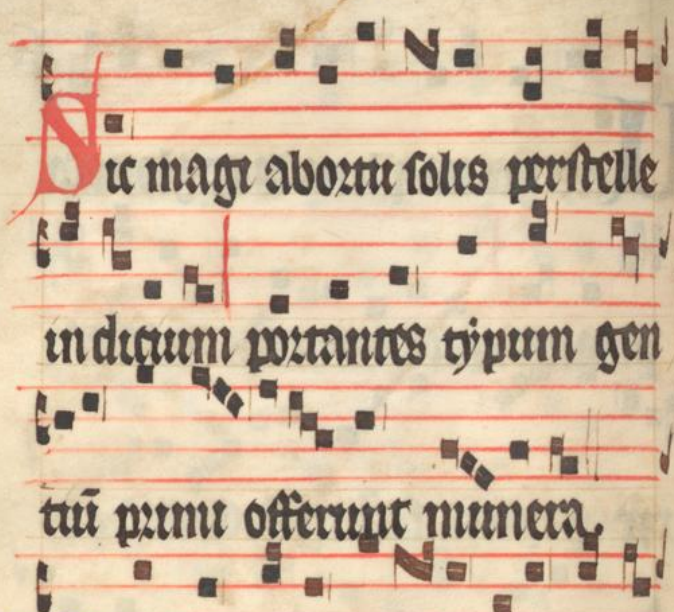 Sic magi abortu solis perstelle
indicium portantes typum gen
tiū primi offerunt munera.